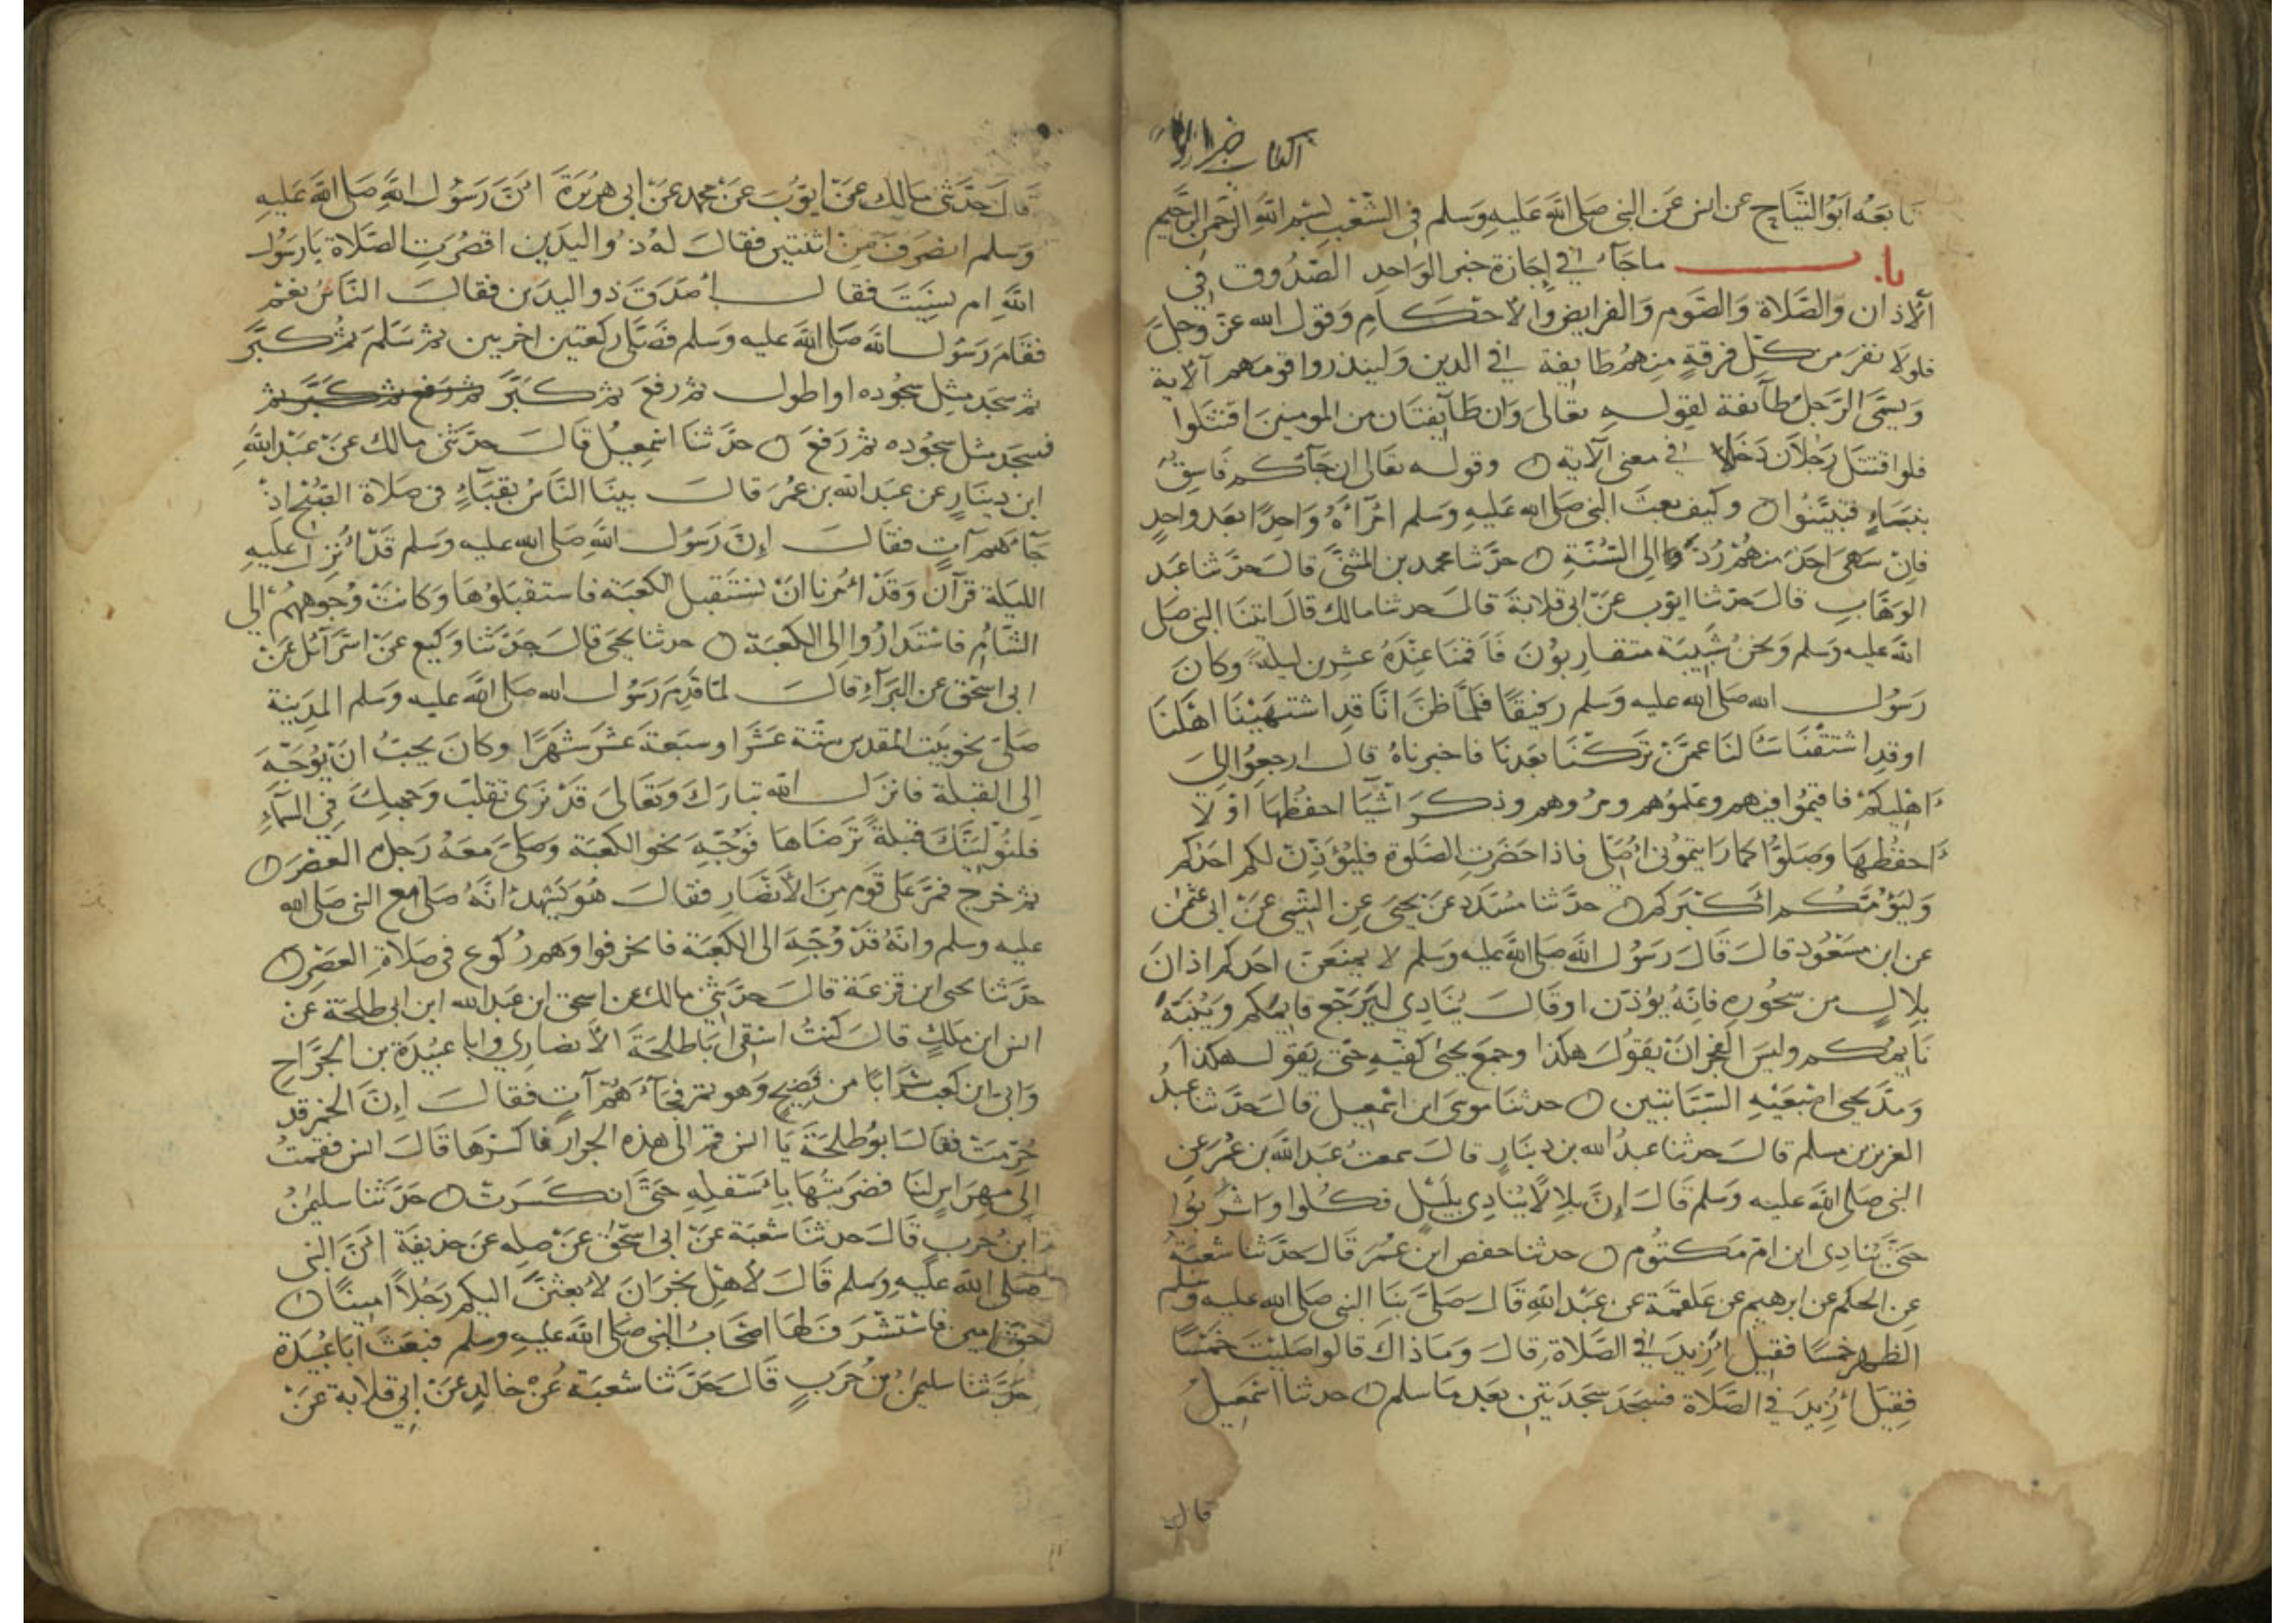 كتاب خبر الا
تابعه ابو التياح عن انس عن النبي صلى الله عليه وسلم في الشعب بسم الله الرحمن الرحيم
باب ما جاء في إجازة خبر الواحد الصدوق في
الاذان والصلاة والصوم والفرايض والاحكام وقول الله عز وجل
فلولا نفر من كل فرقة منهم طايفة في الدين ولينذروا قومهم الآية
ويسمى الرجل طآئفة لقوله تعالى وان طآيفتان من المومنين اقتتلوا
فلو اقتتل رجلان دخلا في معنى الآية وقوله تعالى ان جآءكم فاسق
بنباء فتبينوا وكيف بعث النبي صلى الله عليه وسلم امرآءه واحدا بعد واحد
فان سهى احد منهم رد الى السنة حدثنا محمد بن المثنى قال حدثنا عبد
الوهاب قال حدثنا ايوب عن ابي قلابة قال حدثنا مالك قال اتينا النبي صلى
الله عليه وسلم ونحن شبيبة متقاربون فاقمنا عنده عشرين ليلة وكان
رسول الله صلى الله عليه وسلم رفيقا فلما ظن انا قد اشتهينا اهلنا
او قد اشتقنا سألنا عمن تركنا بعدنا فاخبرناه قال ارجعوا الى
اهليكم فاقيموا فيهم وعلموهم ومروهم وذكر اشيا احفظها او لا
احفظها وصلوا كما رايتموني اصلي فاذا حضرت الصلوة فليؤذن لكم احدكم
وليؤمكم اكبركم حدثنا مسدد عن يحيى عن التيمي عن ابي عثمن
عن ابن مسعود قال قال رسول الله صلى الله عليه وسلم لا يمنعن احدكم اذان
بلال من سحوره فانه يؤذن او قال ينادي ليرجع قايمكم وينبه
نايمكم وليس الفجر ان يقول هكذا وجمع يحيى كفيه حتى يقول هكذا
ومد يحيى اصبعيه السبابتين حدثنا موسى ابن اسمعيل قال حدثنا عبد
العزيز بن مسلم قال حدثنا عبد الله بن دينار قال سمعت عبد الله بن عمر عن
النبي صلى الله عليه وسلم قال إن بلالا ينادي بليل فكلوا واشربوا
حتى ينادي ابن ام مكتوم حدثنا حفص ابن عمر قال حدثنا شعبة
عن الحكم عن ابرهيم عن علقمة عن عبد الله قال صلى بنا النبي صلى الله عليه وسلم
الظهر خمسا فقيل ازيد في الصلاة قال وما ذاك قالوا صليت خمسا
فقيل ازيد في الصلاة فسجد سجدتين بعد ما سلم حدثنا اسمعيل
قال
قال حدثني مالك عن ايوب عن محمد عن ابي هريرة ان رسول الله صلى الله عليه
وسلم انصرف من اثنتين فقال له ذو اليدين اقصرت الصلاة يا رسول
الله ام نسيت فقال اصدق ذو اليدين فقال الناس نعم
فقام رسول الله صلى الله عليه وسلم فصلى ركعتين اخريين ثم سلم ثم كبر
ثم سجد مثل سجوده او اطول ثم رفع ثم كبر ثم رفع ثم كبر ثم
فسجد مثل سجوده ثم رفع حدثنا اسمعيل قال حدثني مالك عن عبد الله
ابن دينار عن عبد الله بن عمر قال بينا الناس بقباء في صلاة الصبح اذ
جآءهم آت فقال إن رسول الله صلى الله عليه وسلم قد انزل عليه
الليلة قرآن وقد امرنا ان نستقبل الكعبة فاستقبلوها وكانت وجوههم الى
الشام فاستداروا الى الكعبة حدثنا يحيى قال حدثنا وكيع عن اسرآئل عن
ابي اسحق عن البرآء قال لما قدم رسول الله صلى الله عليه وسلم المدينة
صلى نحو بيت المقدس ستة عشرا وسبعة عشر شهرا وكان يحب ان يوجه
الى القبلة فانزل الله تبارك وتعالى قد نرى تقلب وجهك في السماء
فلنولينك قبلة ترضاها فوجه نحو الكعبة وصلى معه رجل العصر
ثم خرج فمر على قوم من الأنصار فقال هو يشهد انه صلى مع النبي صلى الله
عليه وسلم وانه قد وجه الى الكعبة فانحرفوا وهم ركوع في صلاة العصر
حدثنا يحيى ابن قزعة قال حدثني مالك عن اسحق ابن عبد الله ابن ابي طلحة عن
انس ابن ملك قال كنت اسقي ابا طلحة الأنصاري وابا عبيدة بن الجراح
وابي ابن كعب شرابا من فضيخ وهو تمر فجآءهم آت فقال إن الخمر قد
حرمت فقال ابو طلحة يا انس قم الى هذه الجرار فاكسرها قال انس فقمت
إلى مهراس لنا فضربتها باسفله حتى انكسرت حدثنا سليمن
ابن حرب قال حدثنا شعبة عن ابي اسحق عن صله عن حذيفة ان النبي
صلى الله عليه وسلم قال لأهل نجران لابعثن اليكم رجلا امينا
حق امين فاستشرف لها اصحاب النبي صلى الله عليه وسلم فبعث ابا عبيدة
حدثنا سليمن بن حرب قال حدثنا شعبة عن خالد عن ابي قلابة عن